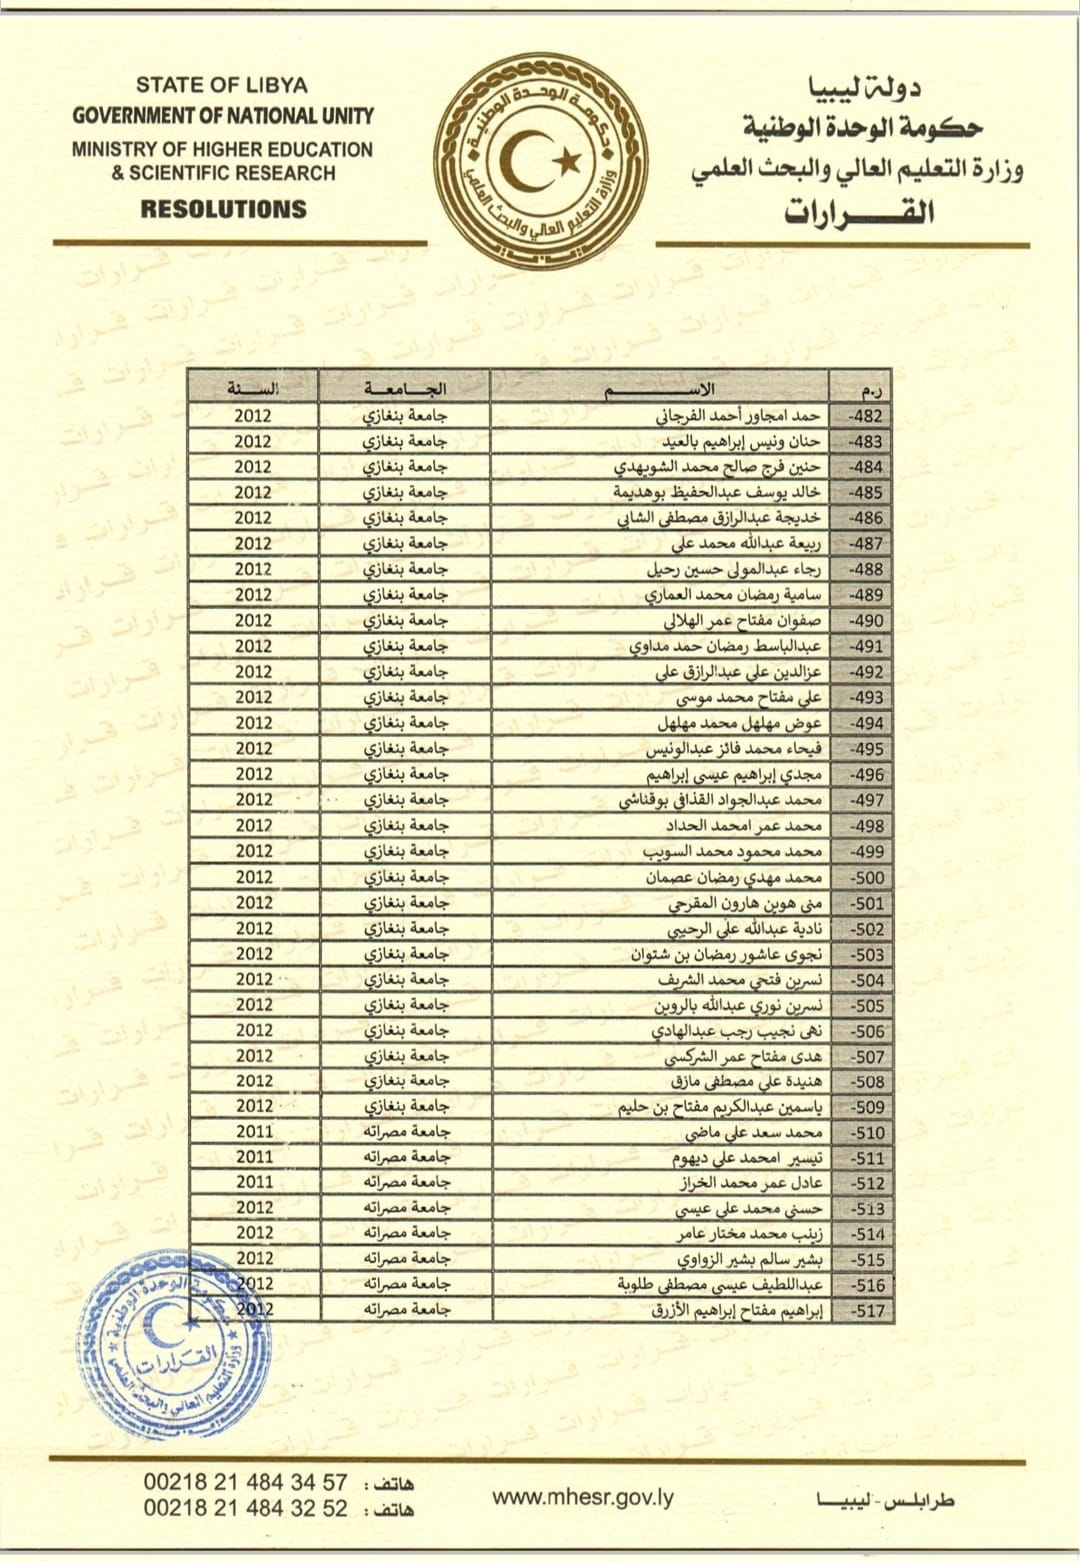 STATE OF LIBYA
GOVERNMENT OF NATIONAL UNITY
MINISTRY OF HIGHER EDUCATION
& SCIENTIFIC RESEARCH
RESOLUTIONS
حكومة الوحدة الوطنية
وزارة التعليم العالي والبحث العلمي
دولة ليبيا
حكومة الوحدة الوطنية
وزارة التعليم العالي والبحث العلمي
القــــرارات
ر.م الاســـــــم الجـــامعـــة الســنة
482- حمد امجاور أحمد الفرجاني جامعة بنغازي 2012
483- حنان ونيس إبراهيم بالعيد جامعة بنغازي 2012
484- حنين فرج صالح محمد الشويهدي جامعة بنغازي 2012
485- خالد يوسف عبدالحفيظ بوهديمة جامعة بنغازي 2012
486- خديجة عبدالرازق مصطفى الشابي جامعة بنغازي 2012
487- ربيعة عبدالله محمد علي جامعة بنغازي 2012
488- رجاء عبدالمولى حسين رحيل جامعة بنغازي 2012
489- سامية رمضان محمد العماري جامعة بنغازي 2012
490- صفوان مفتاح عمر الهلالي جامعة بنغازي 2012
491- عبدالباسط رمضان حمد مداوي جامعة بنغازي 2012
492- عزالدين علي عبدالرازق علي جامعة بنغازي 2012
493- علي مفتاح محمد موسى جامعة بنغازي 2012
494- عوض مهلهل محمد مهلهل جامعة بنغازي 2012
495- فيحاء محمد فائز عبدالونيس جامعة بنغازي 2012
496- مجدي إبراهيم عيسى إبراهيم جامعة بنغازي 2012
497- محمد عبدالجواد القذافي بوقناشي جامعة بنغازي 2012
498- محمد عمر امحمد الحداد جامعة بنغازي 2012
499- محمد محمود محمد السويب جامعة بنغازي 2012
500- محمد مهدي رمضان عصمان جامعة بنغازي 2012
501- منى هوين هارون المقرحي جامعة بنغازي 2012
502- نادية عبدالله علي الرحيبي جامعة بنغازي 2012
503- نجوى عاشور رمضان بن شتوان جامعة بنغازي 2012
504- نسرين فتحي محمد الشريف جامعة بنغازي 2012
505- نسرين نوري عبدالله بالروين جامعة بنغازي 2012
506- نهى نجيب رجب عبدالهادي جامعة بنغازي 2012
507- هدى مفتاح عمر الشركسي جامعة بنغازي 2012
508- هنيدة علي مصطفى مازق جامعة بنغازي 2012
509- ياسمين عبدالكريم مفتاح بن حليم جامعة بنغازي 2012
510- محمد سعد علي ماضي جامعة مصراته 2011
511- تيسير امحمد علي ديهوم جامعة مصراته 2011
512- عادل عمر محمد الخراز جامعة مصراته 2011
513- حسني محمد علي عيسي جامعة مصراته 2012
514- زينب محمد مختار عامر جامعة مصراته 2012
515- بشير سالم بشير الزواوي جامعة مصراته 2012
516- عبداللطيف عيسى مصطفى طلوبة جامعة مصراته 2012
517- إبراهيم مفتاح إبراهيم الأزرق جامعة مصراته 2012
حكومة الوحدة الوطنية
القرارات
وزارة التعليم العالي والبحث العلمي
هاتف : 00218 21 484 34 57
هاتف : 00218 21 484 32 52
www.mhesr.gov.ly
طرابلس - ليبيــا